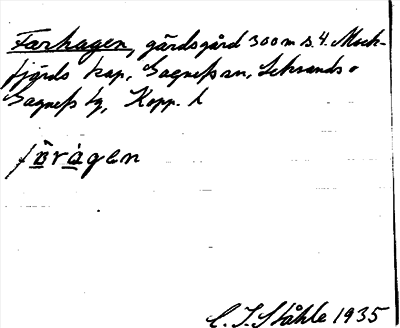 Farhagen, gärdsgård 300 m s. v. Mock-
fjärds kap, Gagnefs sn, Leksands o
Gagnefs tg, Kopp. l
färàgen
C. I. Ståhle 1935